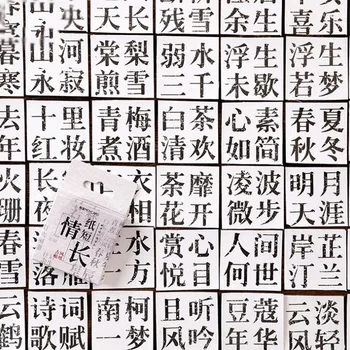 天长 残雪 余生 喜乐
暮 山河 棠梨 弱水 浮生 浮生
寒 永寂 煎雪 三千 未歇 若梦
去 十里 青梅 白茶 心素 春夏
年 红妆 煮酒 清欢 如简 秋冬
火 长 衣 荼蘼 凌波 明月
珊 夜 相 花开 微步 天涯
纸短
情长
春 水 赏心 人间 岸芷
雪 落 方 悦目 何世 汀兰
云 诗词 南柯 且听 豆蔻 云淡
鹤 歌赋 一梦 风吟 年华 风轻